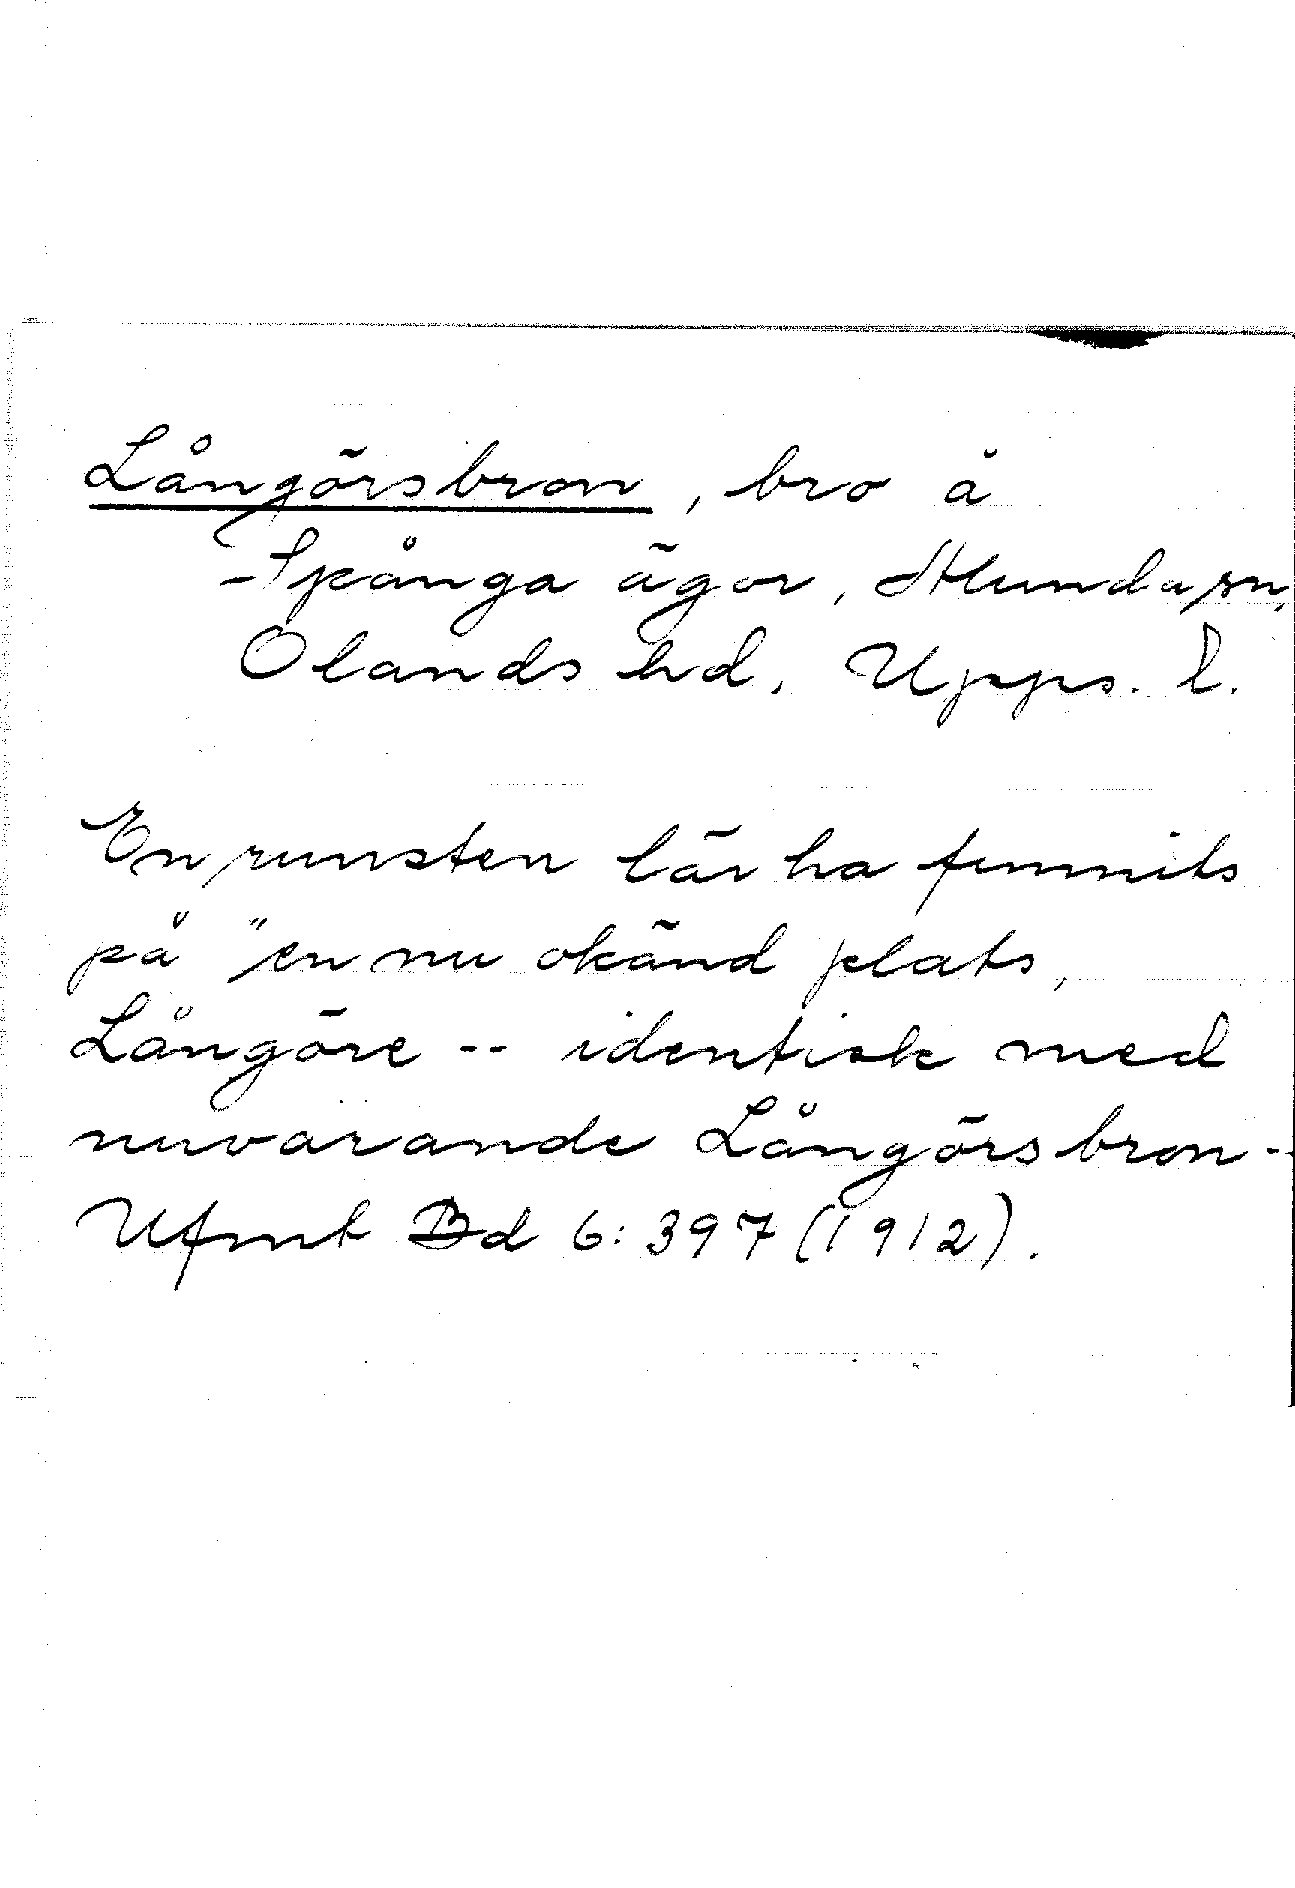 Långörsbron, bro å
Spånga ägor, Alunda sn,
Olands hd, Upps. l.
En runsten lär ha funnits
på "en nu okänd plats,
Långöre -- identisk med
nuvarande Långörsbron--
Ufmt Bd 6:397 (1912).